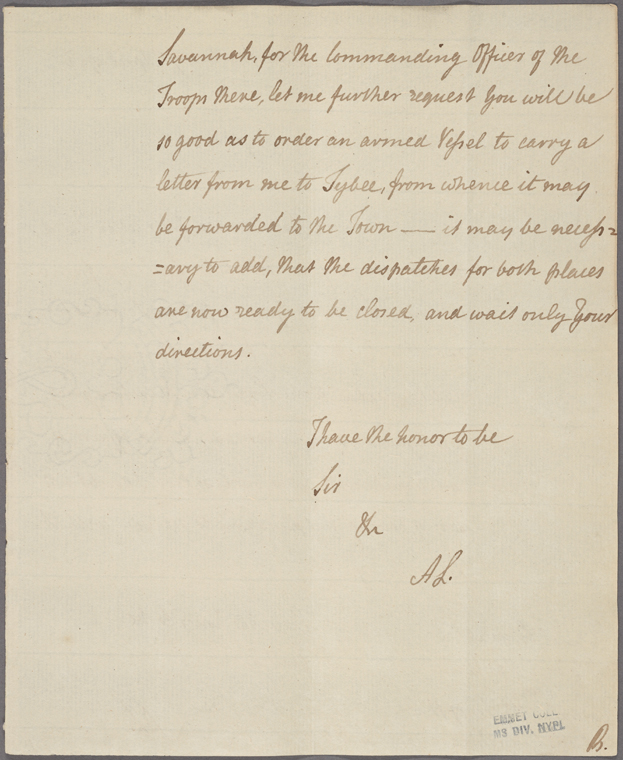 Savannah, for the Commanding Officer of the
Troops there, let me further request You will be
so good as to order an armed Veſsel to carry a
letter from me to Tybee, from whence it may
be forwarded to the Town — it may be neceſs=
=ary to add, that the dispatches for both places
are now ready to be closed, and wait only Your
directions.
I have the honor to be
Sir
&c
AL.
EMMET COLL
MS DIV. NYPL
B.